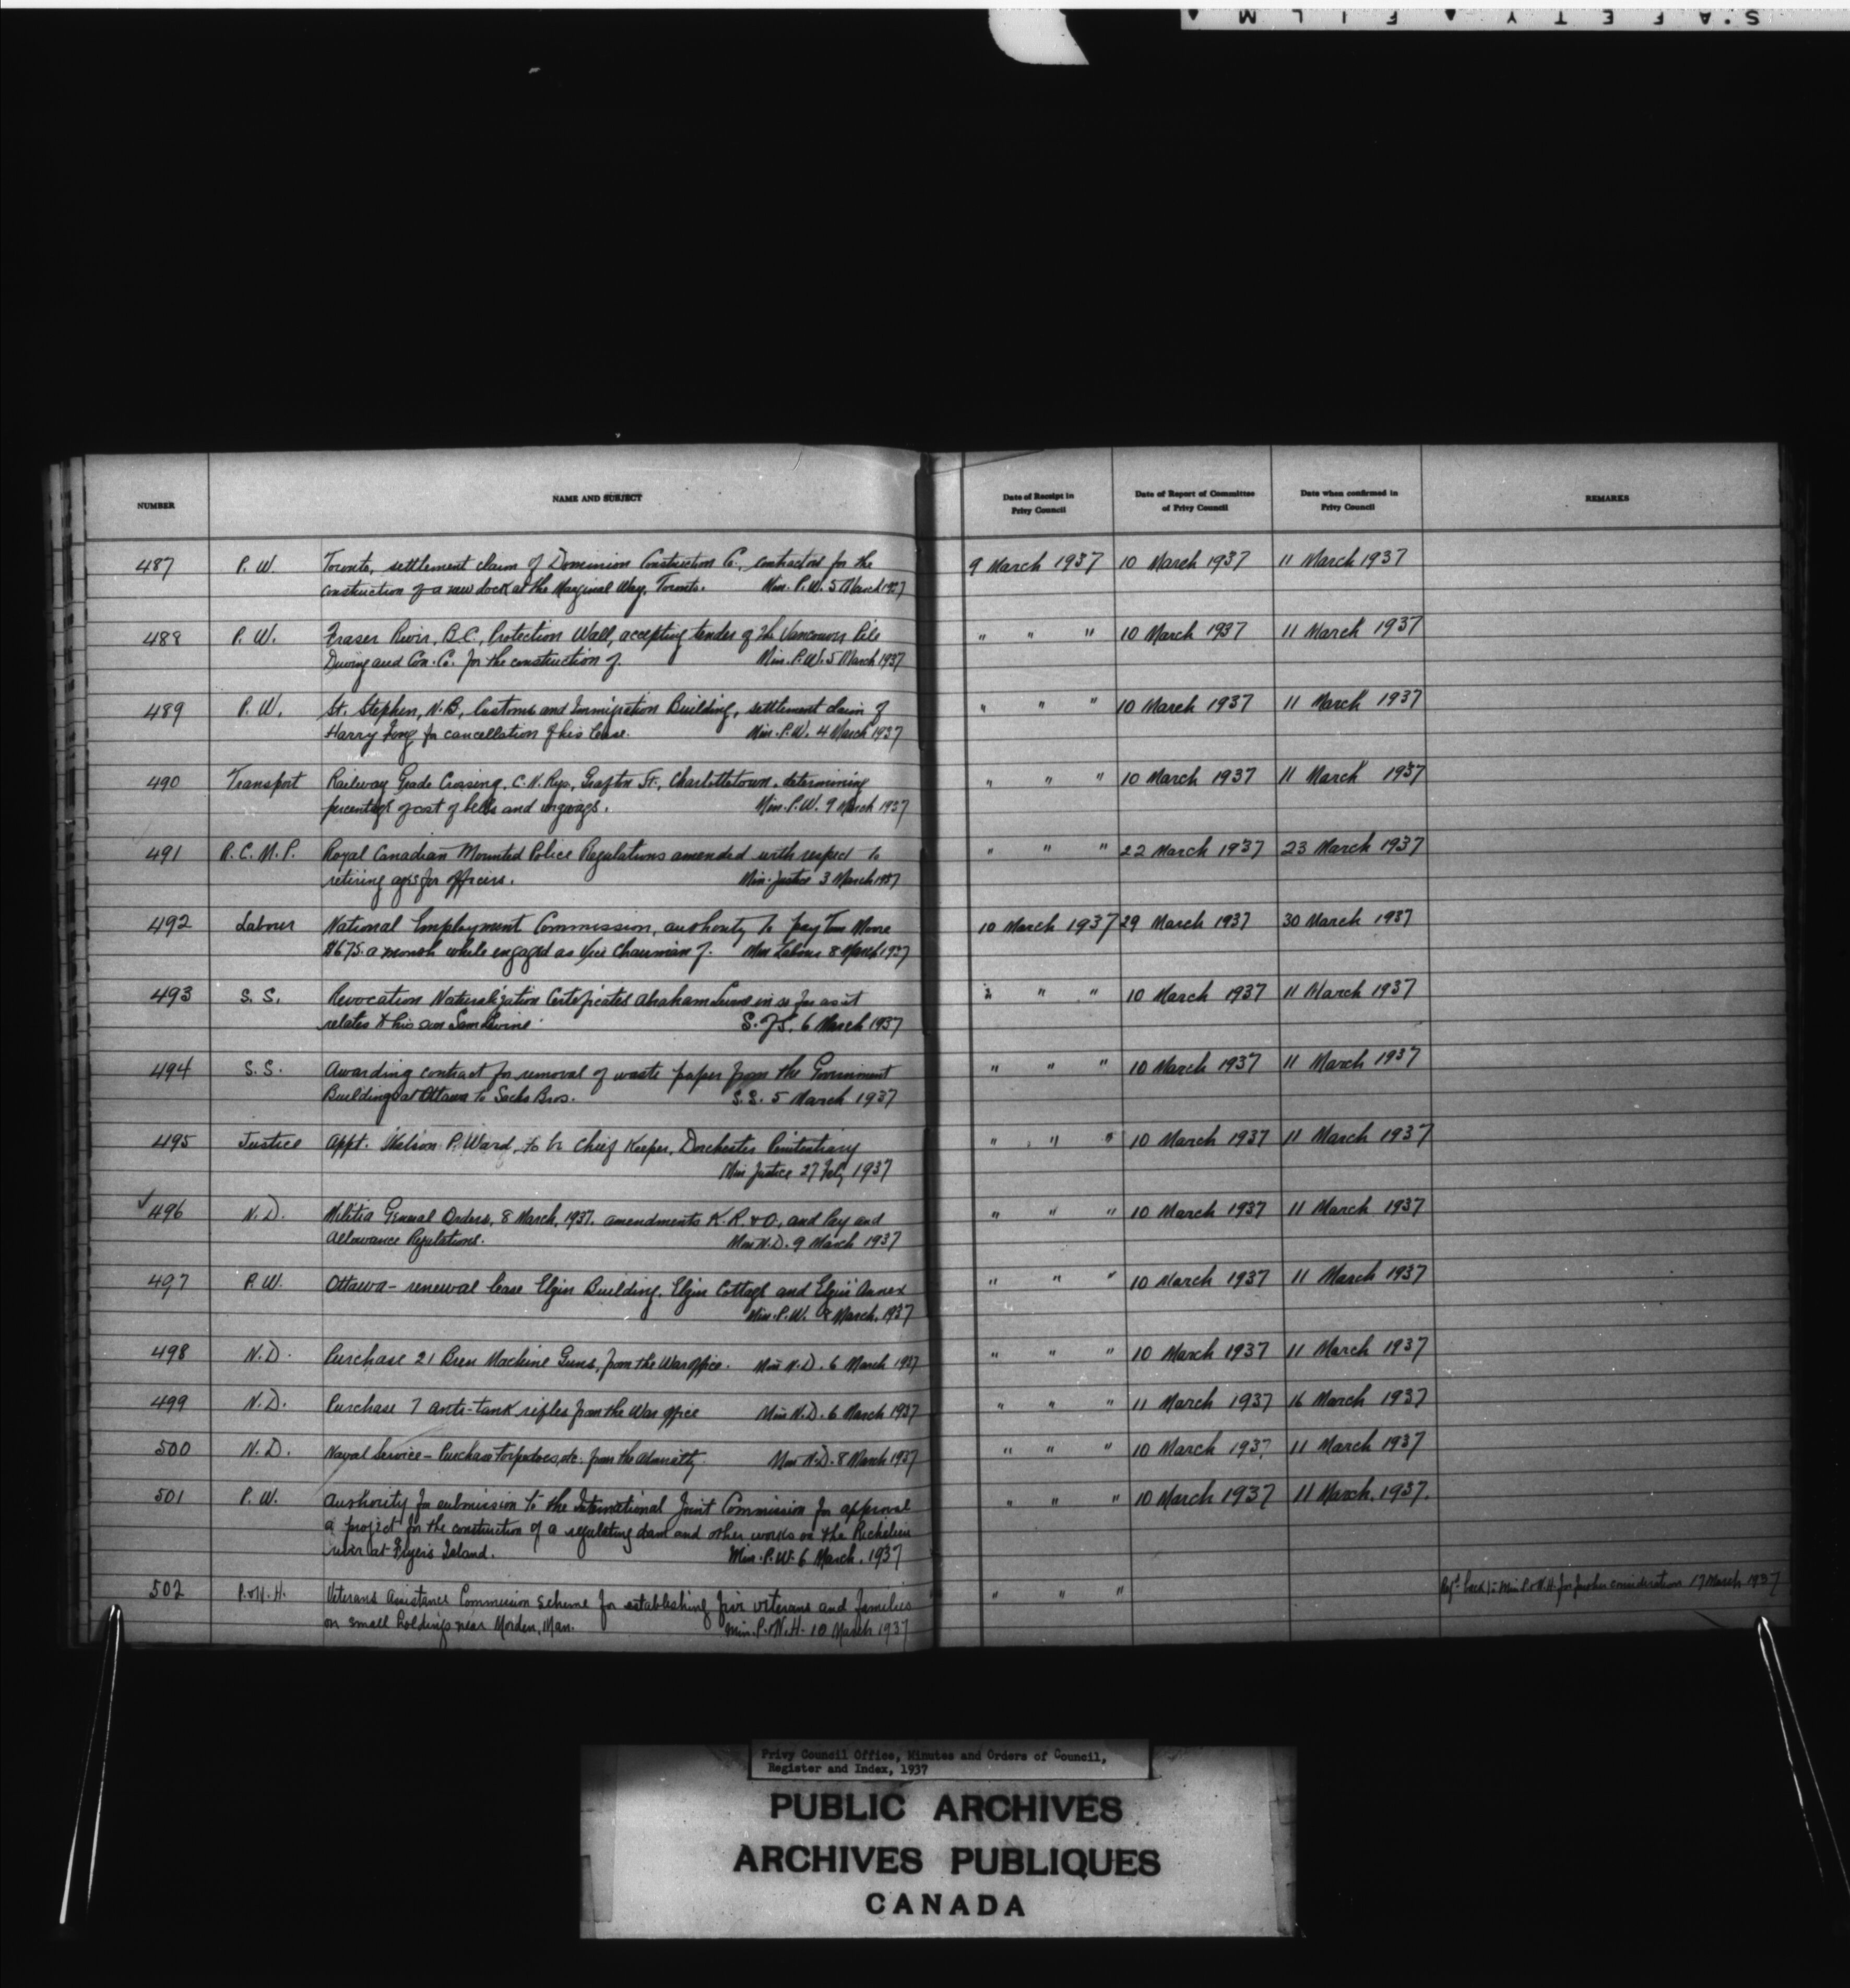 SAFETY FILM
NUMBER
NAME AND SUBJECT
Date of Receipt in
Privy Council
Date of Report of Committee
of Privy Council
Date when confirmed in
Privy Council
REMARKS
487 P. W. Toronto, settlement claim of Dominion Construction Co., contractors for the 9 March 1937 10 March 1937 11 March 1937
construction of a new dock at the Marginal Way, Toronto. Min. P.W. 5 March 1937
488 P. W. Fraser River, B.C., Protection Wall, accepting tender of the Vancouver Pile " " " 10 March 1937 11 March 1937
Driving and Con. Co. for the construction of. Min. P.W. 5 March 1937
489 P. W. St. Stephen, N.B., Customs and Immigration Building, settlement claim of " " " 10 March 1937 11 March 1937
Harry for cancellation of his lease. Min. P.W. 4 March 1937
490 Transport Railway Grade Crossing, C.N. Rys., Grafton St., Charlottetown, determining " " " 10 March 1937 11 March 1937
percentage of cost of bells and wigwags. Min. P.W. 9 March 1937
491 R.C.M.P. Royal Canadian Mounted Police Regulations amended with respect to " " " 22 March 1937 23 March 1937
retiring ages for officers. Min. Justice 3 March 1937
492 Labour National Employment Commission, authority to pay Tom Moore 10 March 1937 29 March 1937 30 March 1937
$675. a month while engaged as Vice Chairman of. Min Labour 8 March 1937
493 S. S. Revocation Naturalization Certificates Abraham Levine in so far as it " " " 10 March 1937 11 March 1937
relates to his son Sam Levine. S. of S. 6 March 1937
494 S. S. Awarding contract for removal of waste paper from the Government " " " 10 March 1937 11 March 1937
Buildings at Ottawa to Sacks Bros. S.S. 5 March 1937
495 Justice Appt. P. Ward, to be Chief Keeper, Dorchester Penitentiary " " " 10 March 1937 11 March 1937
Min Justice 27 Feby 1937
✓496 N.D. Militia General Orders, 8 March, 1937, amendments K.R.&O. and Pay and " " " 10 March 1937 11 March 1937
Allowance Regulations. Min N.D. 9 March 1937
497 P. W. Ottawa – renewal lease Elgin Building, Elgin Cottage and Elgin Annex " " " 10 March 1937 11 March 1937
Min. P.W. 8 March, 1937
498 N.D. Purchase 21 Bren Machine Guns, from the War Office. Min N.D. 6 March 1937 " " " 10 March 1937 11 March 1937
499 N.D. Purchase 7 anti-tank rifles from the War Office Min N.D. 6 March 1937 " " " 11 March 1937 16 March 1937
500 N.D. Naval Service – Purchase torpedoes, etc. from the Admiralty. Min N.D. 8 March 1937 " " " 10 March 1937 11 March 1937
501 P. W. Authority for submission to the International Joint Commission for approval " " " 10 March 1937 11 March, 1937.
a project for the construction of a regulating dam and other works on the Richelieu
river at Fryers Island. Min. P.W. 6 March, 1937
502 P.&N.H. Veterans Assistance Commission scheme for establishing five veterans and families " " " Min P.&N.H. for further consideration 17 March 1937
on small holdings near Morden, Man. Min. P.&N.H. 10 March 1937
Privy Council Office, Minutes and Orders of Council,
Register and Index, 1937
PUBLIC ARCHIVES
ARCHIVES PUBLIQUES
CANADA